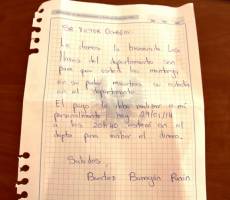 SR VICTOR
Le damos la bienvenida Las
llaves del departamento son
para que usted las mantenga
en su poder mientras su estadia
en el departamento.
El pago lo debe realizar a mi
personalmente hoy 29/01/18
a las 20h40 estaré en el
depto para recibir el dinero.
Saludos
Benitez Barragán